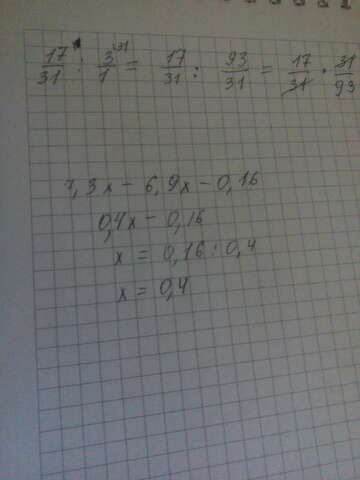 17/31 : 3^31/1 = 17/31 : 93/31 = 17/31 · 31/93
7,3x - 6,9x - 0,16
0,4x - 0,16
x = 0,16 : 0,4
x = 0,4